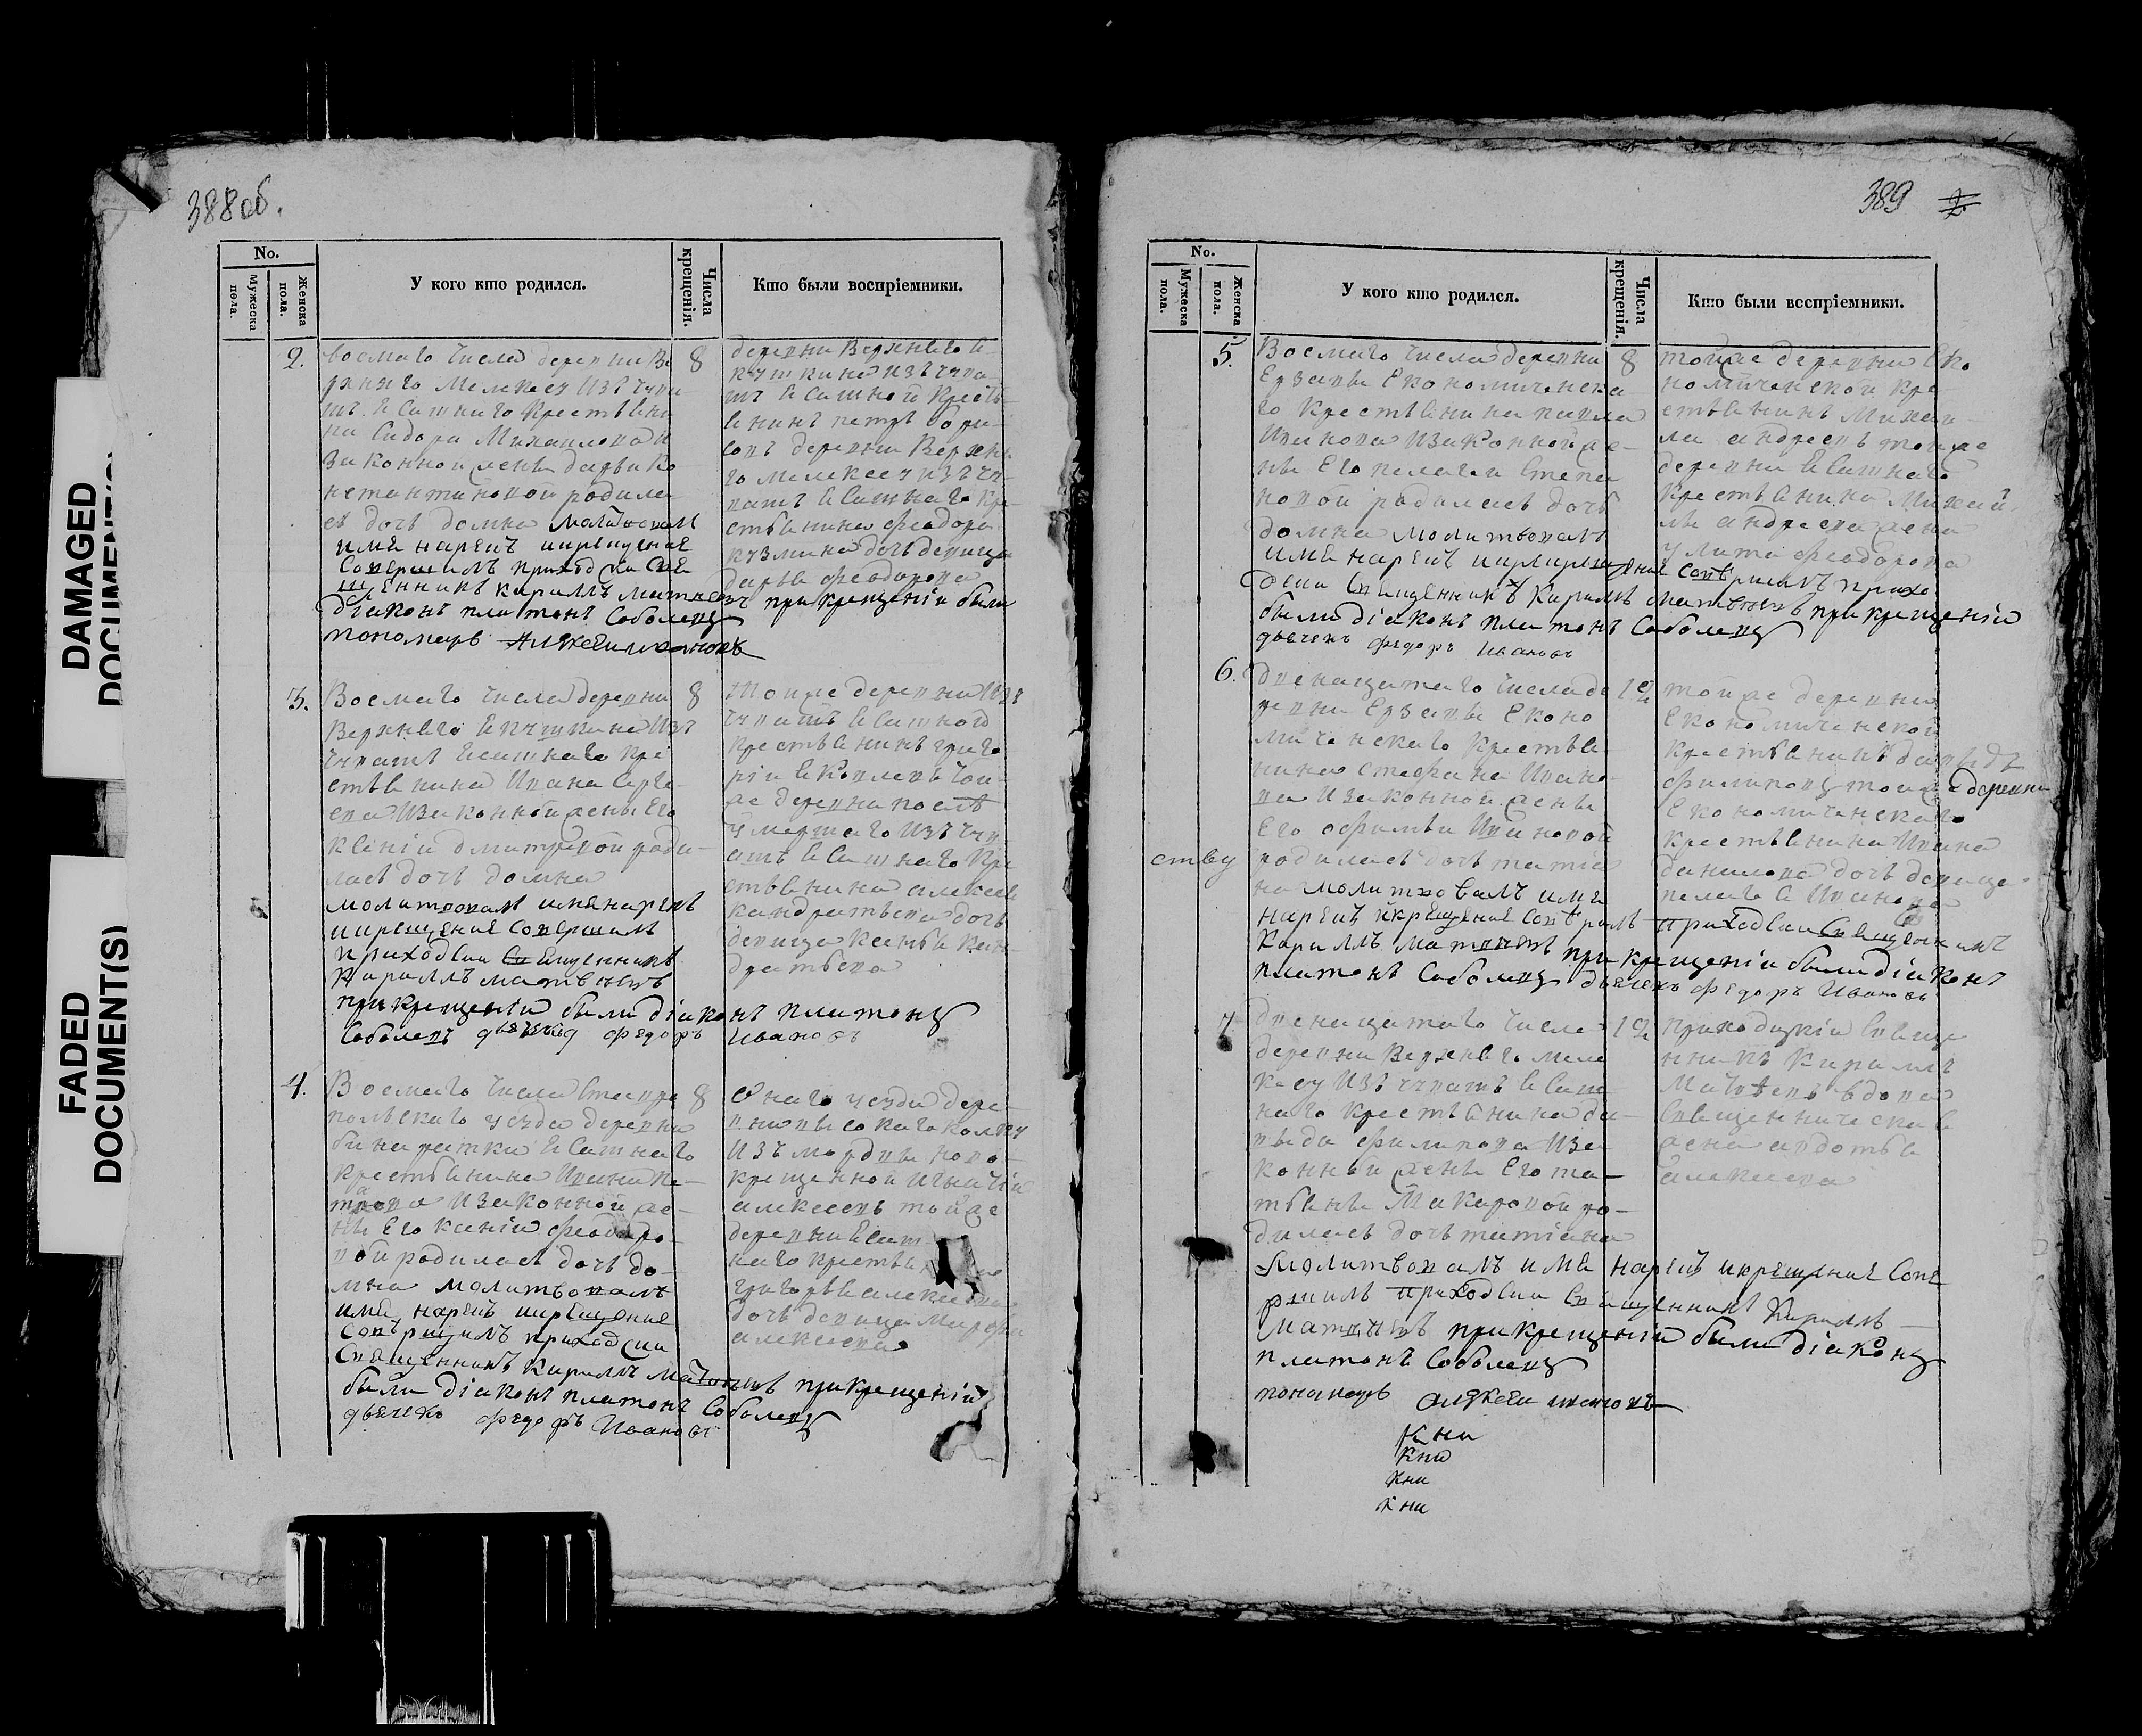 388 об.
No.
Мужеска пола.
Женска пола.
У кого кто родился.
Числа крещенія.
Кто были воспріемники.
2.
восмаго числа деревни Ве
рхняго Мелекеса изъ чува-
шъ ясашнаго крестьяни
на Сидора Михаилова и
законной жены дарьи Ко
нстантиновой родила
сь дочь домна молитвовалъ
имя нарекъ икрещение
Совершилъ приходски Свя
щенникъ Кириллъ Матвеевъ при крещеніи были
діаконъ платонъ Соболевъ
пономарь
8
деревни Верхняго
изъ чува
шъ ясашной кресть
янинъ петръ бори
совъ деревни Верхня
го мелекеса изъ чу
вашъ ясашнаго кре
стьянина феодора
кузмина дочь девица
дарья феодорова
3.
Восмаго числа деревни
Верхняго изъ
чувашъ ясашнаго кре
стьянина Ивана Серге
ева изаконной жены Его
ксеніи дмитревой роди-
лась дочь домна
молитвовалъ имя нарекъ
икрещение Совершилъ
приходски Священникъ
Кириллъ Матвеевъ
при крещеніи были діаконъ платонъ
Соболевъ дьячекъ федоръ Ивановъ
8
тойже деревни изъ
чувашъ ясашной
крестьянинъ григо
рій той-
же деревни после
умершаго изъ чув
ашъ ясашнаго кре
стьянина алексея
кандратьева дочь
девица ксенья кан-
дратьева
4.
Восмаго числа Ставро
польскаго уезда деревни
ясашнаго
крестьянина Ивана пе-
трова изаконной же-
ны Его ксеніи феодоро-
вой родилась дочь до-
мна молитвовалъ
имя нарекъ икрещение
Совершилъ приходски
Священникъ Кириллъ Матвеевъ при крещеніи
были діаконъ платонъ Соболевъ
дьячекъ федоръ Ивановъ
8
Онаго уезда дере-
вни высокаго колку
изъ мордвы ново-
крещенной
алексеевъ тойже
деревни ясаш
наго крестья
григорья алексеева
дочь девица Марфа
алексеева
389
No.
Мужеска пола.
Женска пола.
У кого кто родился.
Числа крещенія.
Кто были воспріемники.
5.
Восмаго числа деревни
Ерзавы Економическа
го крестьянина павла
Иванова изаконной же-
ны Его пелагеи Степа
новой родилась дочь
домна молитвовалъ
имя нарекъ икрещение Совершилъ прихо
дски Священникъ Кириллъ Матвеевъ при крещеніи
были діаконъ платонъ Соболевъ
дьячекъ федоръ Ивановъ
8
тойже деревни Еко
номической кре
стьянинъ Михаи
ла андреевъ тойже
деревни ясашнаго
крестьянина Михай
лы андреева жена
улита феодорова
6.
двенацатаго числа де
ревни Ерзавы Еконо
мическаго крестья
нина стефана Ивано
ва изаконной жены
Его офимьи Ивановой
родилась дочь татия
на молитвовалъ имя
нарекъ икрещение Совершилъ приходски Священникъ
Кириллъ Матвеевъ при крещеніи были діаконъ
платонъ Соболевъ дьячекъ федоръ Ивановъ
ству
12
тойже деревни
Економической
крестьянинъ давыдъ
филиповъ тойже деревни
Економическаго
крестьянина Ивана
данилова дочь девица
пелагея Иванова
7.
двенацатаго числа
деревни Верхняго Меле
кесу изъ чувашъ ясаш
наго крестьянина да-
выда филипова иза
конной жены Его та-
тьяны Макаровой ро-
дилась дочь татіана
молитвовалъ имя нарекъ икрещение Сове
ршилъ приходски Священникъ Кириллъ
Матвеевъ при крещеніи были діаконъ
платонъ Соболевъ
пономарь
12
приходскіи Свяще
нникъ Кириллъ
Матвеевъ вдова
Священническая
жена авдотья
алексеева
Кни
Кни
Кни
Кни
DAMAGED
DOCUMENT(S)
FADED
DOCUMENT(S)